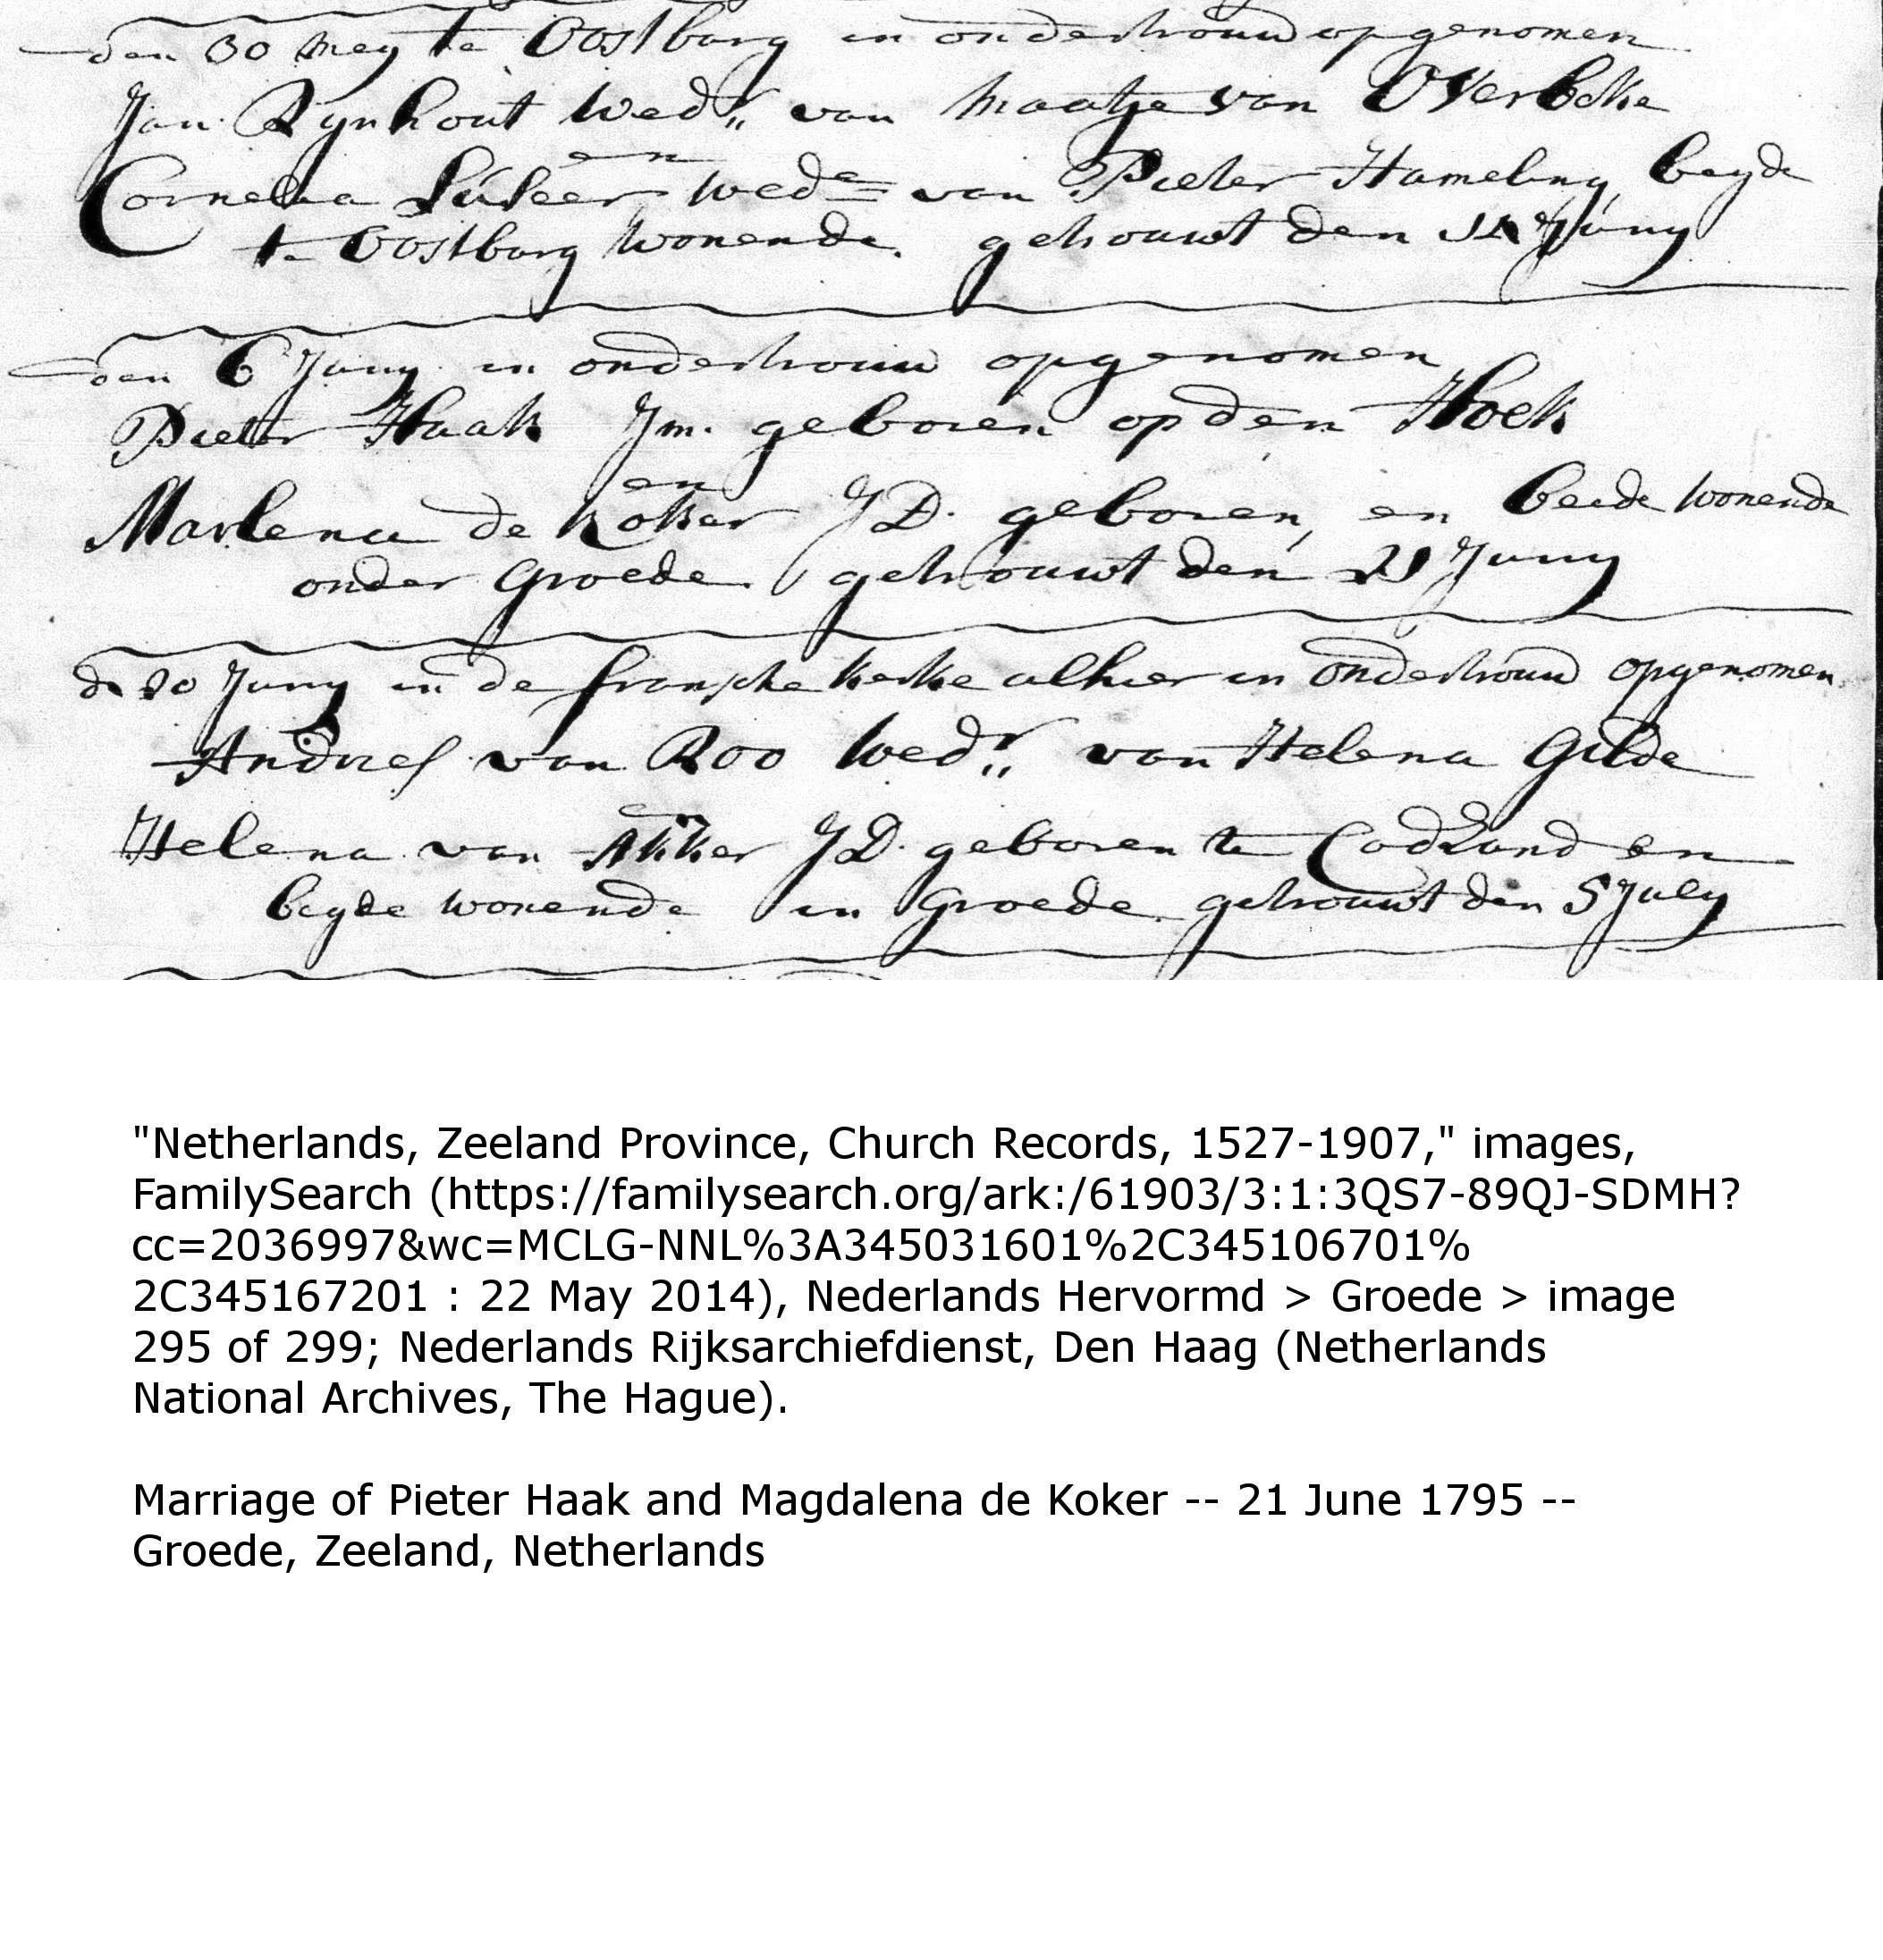 den 30 Mey te Oostburg in ondertrouw opgenomen
Jan Rynhout Wedr van Maatje van Overbeke
en
Cornelia Wede van Pieter Hameling, beyde
te Oostburg wonende. getrouwt den Juny
den 6 Juny in ondertrouw opgenomen
Pieter Haak Jm. geboren op den Hoek
en
Marlena de Koker JD. geboren, en beide wonende
onder Groede. getrouwt den 21 Juny
de 20 Juny in de fransche kerke alhier in ondertrouw opgenomen
Andries van Roo Wedr van Helena Gilde
en
Helena van Akker JD. geboren te Cadzand en
beyde wonende in Groede. getrouwt den 5 July
"Netherlands, Zeeland Province, Church Records, 1527-1907," images,
FamilySearch (https://familysearch.org/ark:/61903/3:1:3QS7-89QJ-SDMH?
cc=2036997&wc=MCLG-NNL%3A345031601%2C345106701%
2C345167201 : 22 May 2014), Nederlands Hervormd > Groede > image
295 of 299; Nederlands Rijksarchiefdienst, Den Haag (Netherlands
National Archives, The Hague).
Marriage of Pieter Haak and Magdalena de Koker -- 21 June 1795 --
Groede, Zeeland, Netherlands